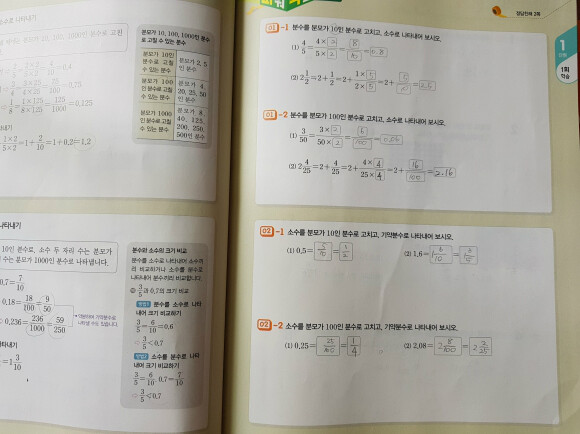 소수로 나타내기
분모가 10, 100, 1000인 분수로 고칠 수 있는 분수
분모가 10인 분수로 고칠 수 있는 분수
분모가 2, 5인 분수
분모가 100인 분수로 고칠 수 있는 분수
분모가 4, 20, 25, 50인 분수
분모가 1000인 분수로 고칠 수 있는 분수
분모가 8, 40, 125, 200, 250, 500인 분수
=0.4
=0.75
1/8=1×125/8×125=125/1000=0.125
1×2/5×2=1+2/10=1+0.2=1.2
나타내기
10인 분수로, 소수 두 자리 수는 분모가
수는 분모가 1000인 분수로 나타냅니다.
0.7=7/10
0.18=18/100=9/50
0.236=236/1000=59/250
=1 3/10
분수와 소수의 크기 비교
분수를 소수로 나타내어 소수끼리 비교하거나 소수를 분수로 나타내어 분수끼리 비교합니다.
예 3/5과 0.7의 크기 비교
방법1 분수를 소수로 나타내어 크기 비교하기
3/5=6/10=0.6
3/5<0.7
방법2 소수를 분수로 나타내어 크기 비교하기
3/5=6/10, 0.7=7/10
3/5<0.7
정답잔해 2쪽
1
단원
1회
학습
01-1 분수를 분모가 10인 분수로 고치고, 소수로 나타내어 보시오.
(1) 4/5=4×2/5×2=8/10=0.8
(2) 2 1/2=2+1/2=2+1×5/2×5=2+5/10=2.5
01-2 분수를 분모가 100인 분수로 고치고, 소수로 나타내어 보시오.
(1) 3/50=3×2/50×2=6/100=0.06
(2) 2 4/25=2+4/25=2+4×4/25×4=2+16/100=2.16
02-1 소수를 분모가 10인 분수로 고치고, 기약분수로 나타내어 보시오.
(1) 0.5=5/10=1/2
(2) 1.6=
02-2 소수를 분모가 100인 분수로 고치고, 기약분수로 나타내어 보시오.
(1) 0.25=25/100=1/4
(2) 2.08=2 8/100=2 2/25